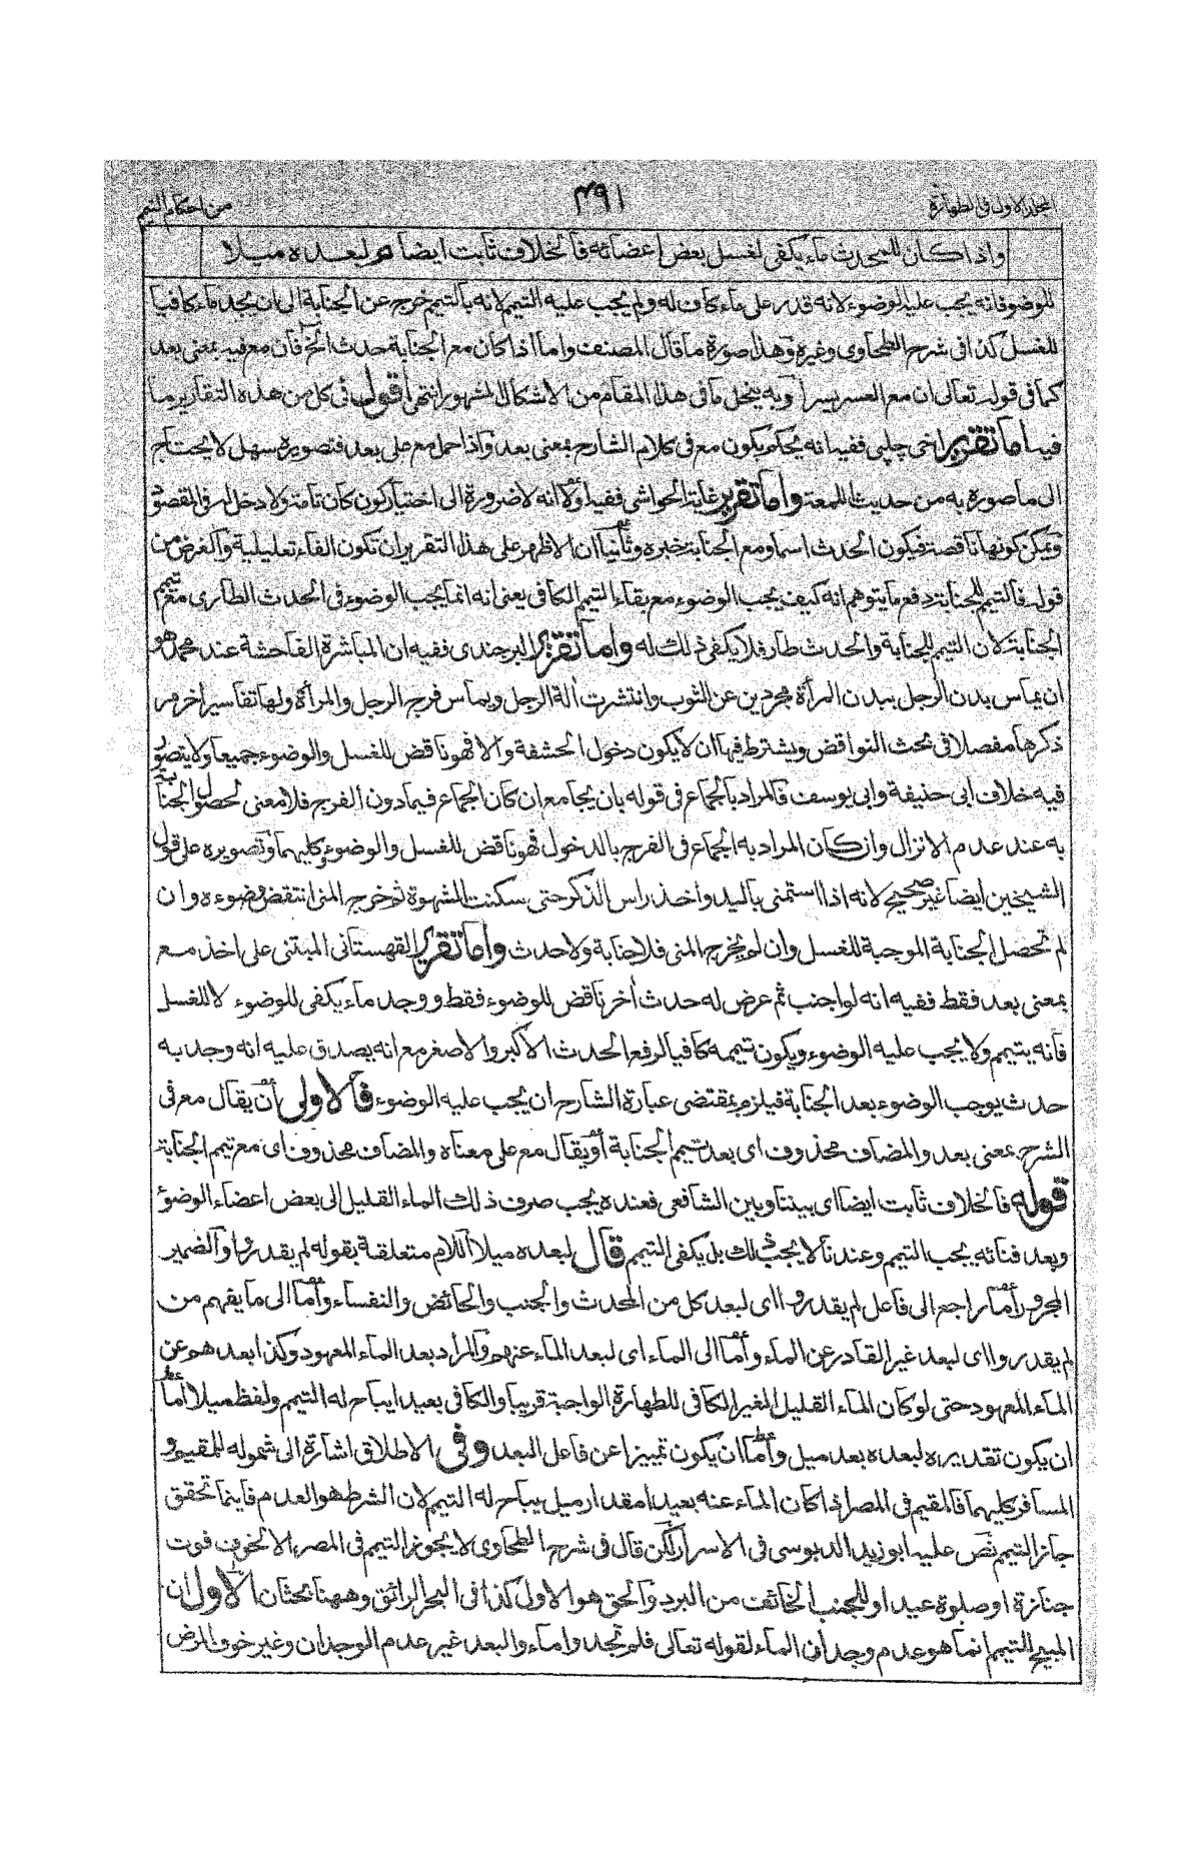 المجلد الاول فى الطهارة
٤٩١
من احكام التيمم
واذا كان للمحدث ماء يكفى لغسل بعض اعضائه فالخلاف ثابت ايضا م لبعده ميلا
للوضوء فانه يجب عليه الوضوء لانه قدر على ماء كاف له ولم يجب عليه التيمم لانه بالتيمم خرج عن الجنابة الى ان يجد ماء كافيا
للغسل كذا فى شرح الطحاوى وغيره وهذا صورة ما قال المصنف واما اذا كان مع الجنابة حدث الخ فان مع فيه بمعنى بعد
كما فى قوله تعالى ان مع العسر يسرا وبه ينحل ما فى هذا المقام من الاشكال المشهور انتهى اقول فى كل من هذه التقارير ما
فيه اما تقرير اخى چلپى ففيه انه يحكم بكون مع فى كلام الشارح بمعنى بعد واذا حمل مع على بعد فتصويره سهل لا يحتاج
الى ما صوره به من حديث اللمعة واما تقرير غاية الحواشى ففيه اولا انه لا ضرورة الى اختيار كون كان تامة ولا دخل له فى المقصود
ويمكن كونها ناقصة فيكون الحدث اسما ومع الجنابة خبره وثانيا ان الاظهر على هذا التقرير ان تكون الفاء تعليلية والغرض من
قوله فالتيمم للجنابة دفع ما يتوهم انه كيف يجب الوضوء مع بقاء التيمم الكافى يعنى انه انما يجب الوضوء فى الحدث الطارى مع تيمم
الجنابة لان التيمم للجنابة والحدث طار فلا يكفى ذلك له واما تقرير البرجندى ففيه ان المباشرة الفاحشة عند محمد هو
ان يماس بدن الرجل ببدن المرأة مجردين عن الثوب وانتشرت الة الرجل ويماس فرجه الرجل والمرأة ولها تفاسير اخر مر
ذكرها مفصلا فى بحث النواقض ويشترط فيها ان لا يكون دخول الحشفة والا فهو ناقض للغسل والوضوء جميعا ولا يتصور
فيه خلاف ابى حنيفة وابى يوسف فالمراد بالجماع فى قوله بان يجامع ان كان الجماع فيما دون الفرج فلا معنى لحصول الجنابة
به عند عدم الانزال وان كان المراد به الجماع فى الفرج بالدخول فهو ناقض للغسل والوضوء كليهما وتصويره على قول
الشيخين ايضا غير صحيح لانه اذا استمنى باليد واخذ راس الذكر حتى سكنت الشهوة ثم خرج المنى انتقض وضوءه وان
لم تحصل الجنابة الموجبة للغسل وان لم يخرج المنى فلا جنابة ولا حدث واما تقرير القهستانى المبتنى على اخذ مع
بمعنى بعد فقط ففيه انه لو اجنب ثم عرض له حدث أخر ناقض للوضوء فقط ووجد ماء يكفى للوضوء لا للغسل
فانه يتيمم ولا يجب عليه الوضوء ويكون تيممه كافيا لرفع الحدث الاكبر والاصغر مع انه يصدق عليه انه وجد به
حدث يوجب الوضوء بعد الجنابة فيلزم بمقتضى عبارة الشارح ان يجب عليه الوضوء فالاولى أن يقال مع فى
الشرح بمعنى بعد والمضاف محذوف اى بعد تيمم الجنابة أو يقال مع على معناه والمضاف محذوف اى مع تيمم الجنابة
قوله فالخلاف ثابت ايضا اى بيننا وبين الشافعى فعنده يجب صرف ذلك الماء القليل الى بعض اعضاء الوضوء
وبعد فنائه يجب التيمم وعندنا لا يجب ذلك بل يكفى التيمم قال لبعده ميلا اللام متعلقة بقوله لم يقدروا والضمير
المجرور أما راجع الى فاعل لم يقدروا اى لبعد كل من المحدث والجنب والحائض والنفساء وأما الى ما يفهم من
لم يقدروا اى لبعد غير القادر عن الماء وأما الى الماء اى لبعد الماء عنهم والمراد بعد الماء المعهود وكذا بعد هو عن
الماء المعهود حتى لو كان الماء القليل الغير الكافى للطهارة الواجبة قريبا والكافى بعيدا يباح له التيمم ولفظ ميلا أما
ان يكون تقديره لبعده بعد ميل وأما ان يكون تمييزا عن فاعل البعد وفى الاطلاق اشارة الى شموله للمقيم و
المسافر كليهما فالمقيم فى المصر اذا كان الماء عنه بعيدا مقدار ميل يباح له التيمم لان الشرط هو العدم فاينما تحقق
جاز التيمم نص عليه ابو زيد الدبوسى فى الاسرار لكن قال فى شرح الطحاوى لا يجوز التيمم فى المصر الا لخوف فوت
جنازة او صلوة عيد او للجنب الخائف من البرد والحق هو الاول كذا فى البحر الرائق وههنا بحثان الاول ان
المبيح للتيمم انما هو عدم وجدان الماء لقوله تعالى فلم تجدوا ماء والبعد غير عدم الوجدان وغير خوف المرض